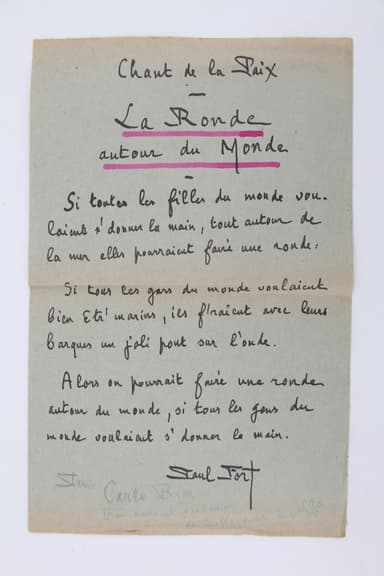 Chant de la Paix
La Ronde
autour du Monde
Si toutes les filles du monde vou-
laient s'donner la main, tout autour de
la mer elles pourraient faire une ronde.
Si tous les gars du monde voulaient
bien etr' marins, ils f'raient avec leurs
barques un joli pont sur l'onde.
Alors on pourrait faire une ronde
autour du monde, si tous les gens du
monde voulaient s'donner la main.
Paul Fort
Carlo